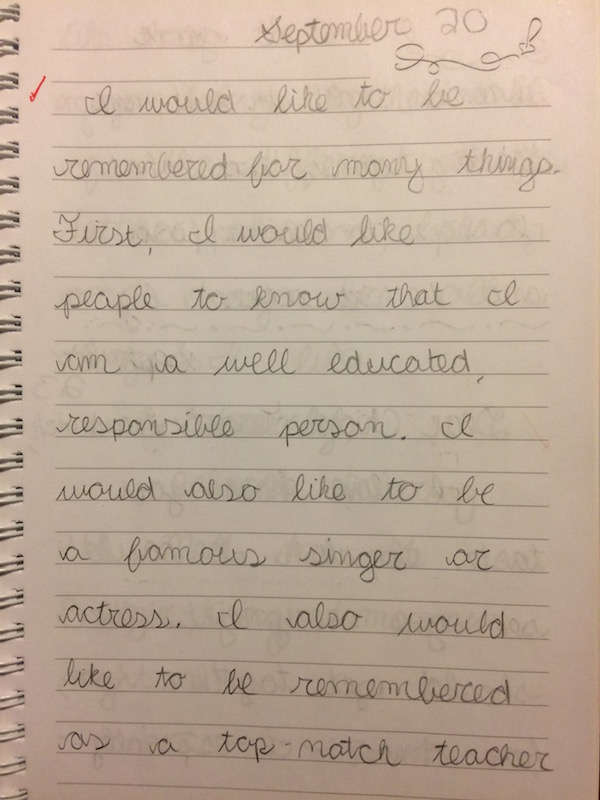 September 20
I would like to be
remembered for many things.
First, I would like
people to know that I
am a well educated,
responsible person. I
would also like to be
a famous singer or
actress. I also would
like to be remembered
as a top-notch teacher